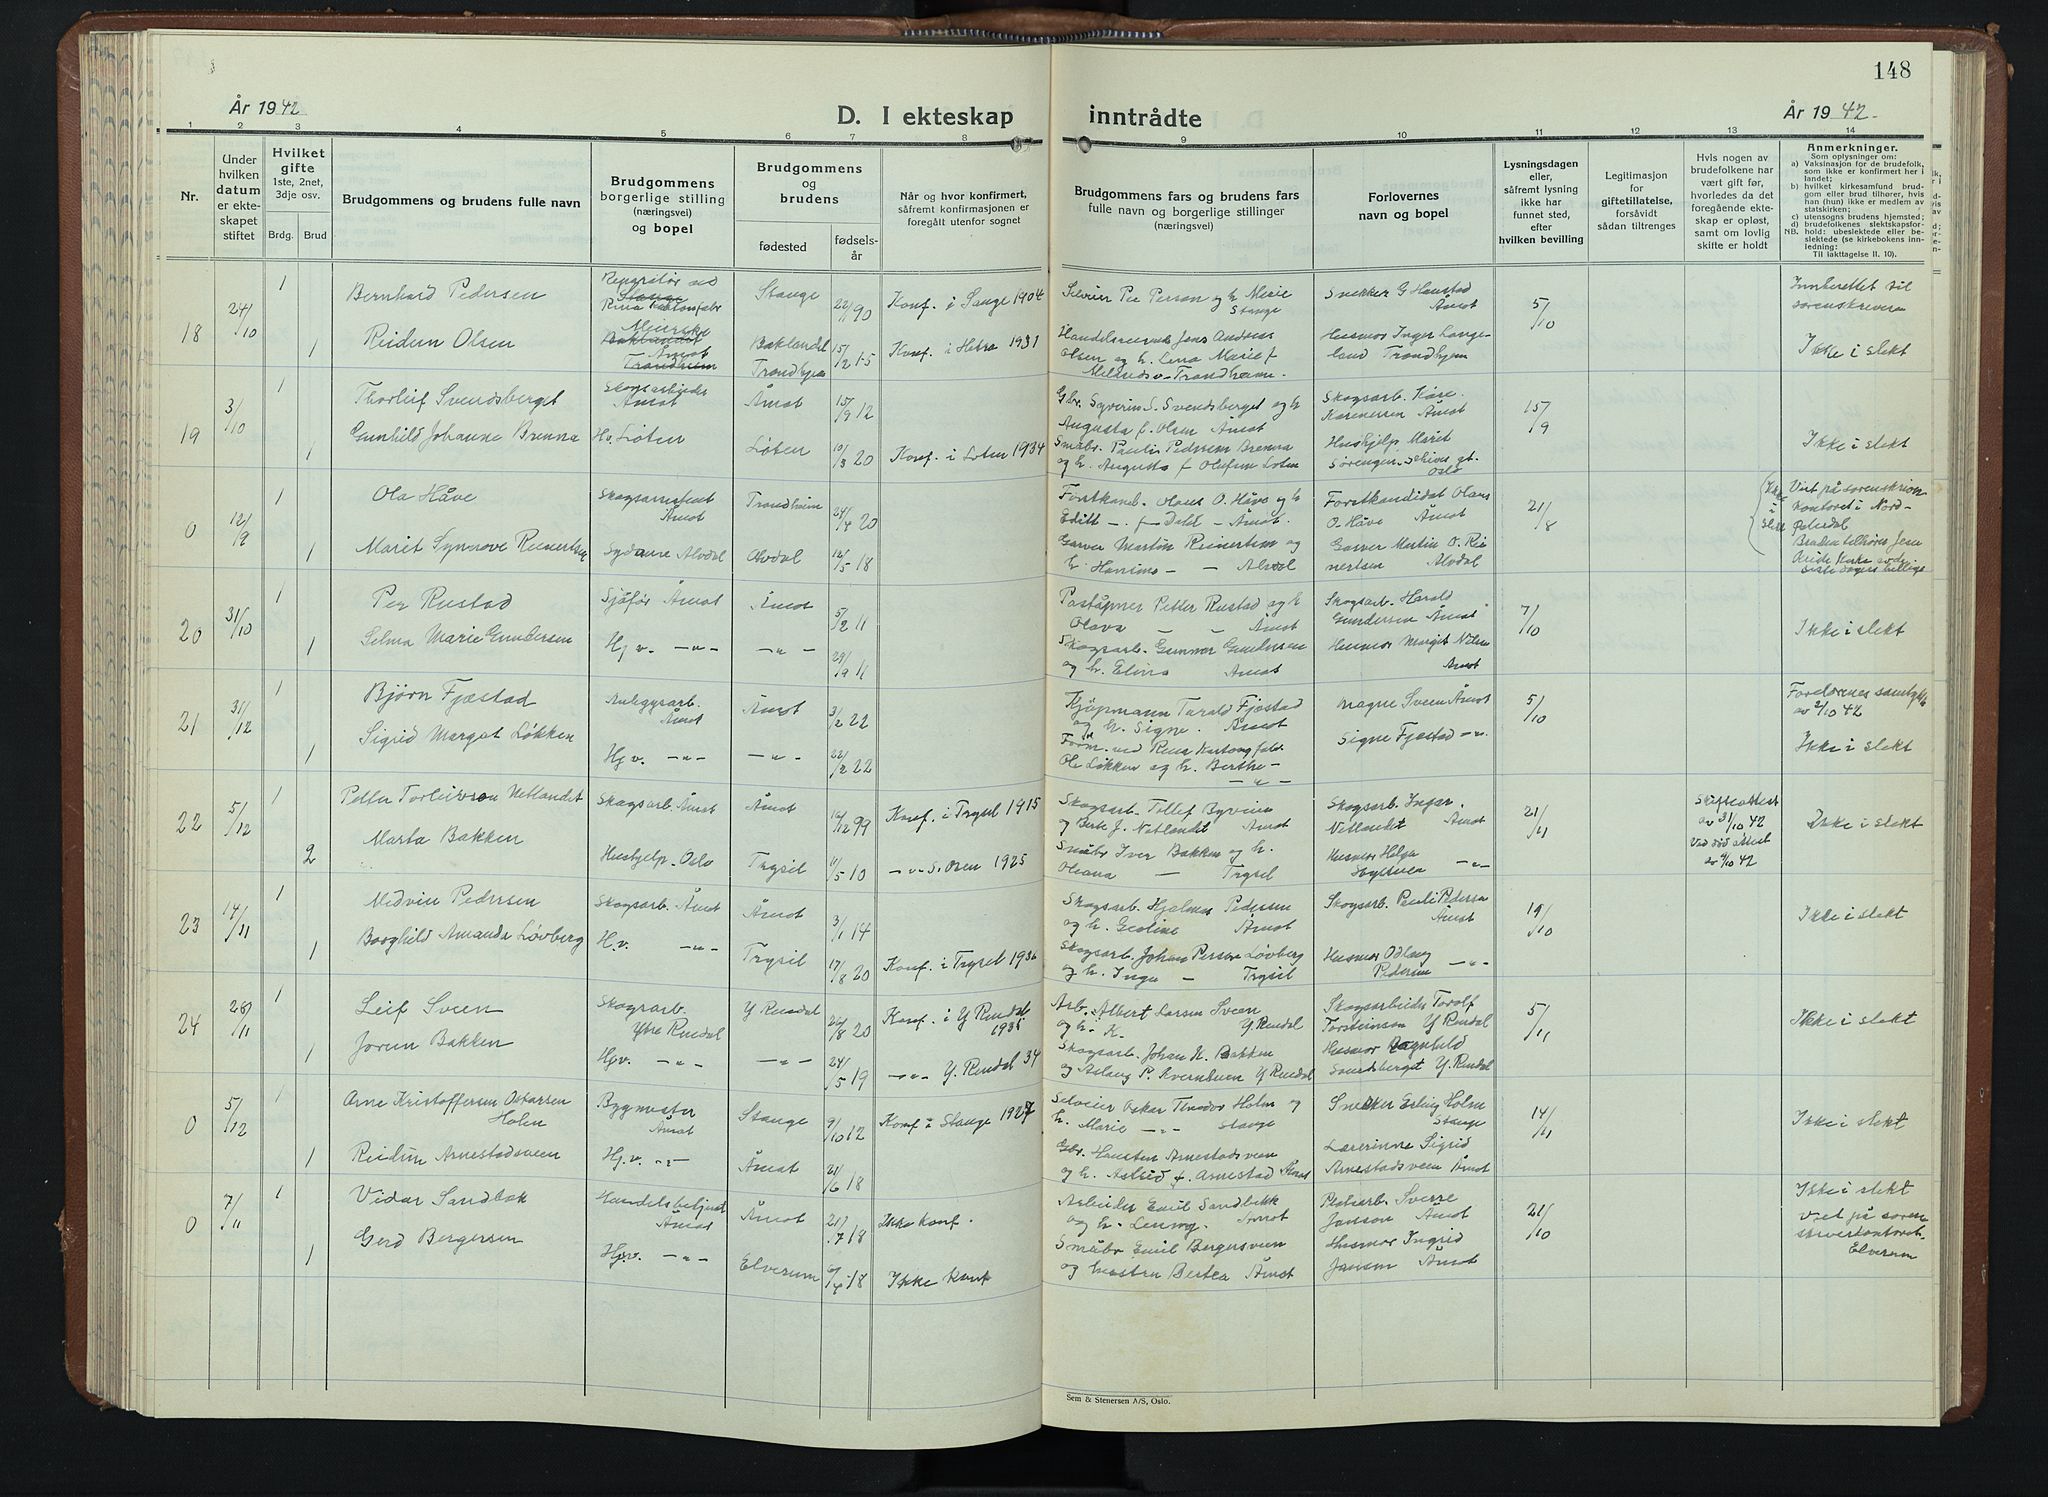 148
År 1942
D. I ekteskap inntrådte
År 1942.
1 2 3 4 5 6 7 8 9 10 11 12 13 14
Nr.
Under hvilken datum er ekteskapet stiftet
Hvilket gifte
1ste, 2net, 3dje osv.
Brdg. Brud
Brudgommens og brudens fulle navn
Brudgommens
borgerlige stilling
(næringsvei)
og bopel
Brudgommens
og
brudens
fødested
fødselsår
Når og hvor konfirmert,
såfremt konfirmasjonen er
foregått utenfor sognet
Brudgommens fars og brudens fars
fulle navn og borgerlige stillinger
(næringsvei)
Forlovernes
navn og bopel
Lysningsdagen
eller,
såfremt lysning
ikke har
funnet sted,
efter
hvilken bevilling
Legitimasjon
for
giftetillatelse,
forsåvidt
sådan tiltrenges
Hvis nogen av
brudefolkene har
vært gift før,
hvorledes da det
foregående ekteskap er opløst,
samt om lovlig
skifte er holdt
Anmerkninger.
Som oplysninger om:
a) Vaksinasjon for de brudefolk,
som ikke er konfirmert her i
landet;
b) hvilket kirkesamfund brudgom eller brud tilhører, hvis
han (hun) ikke er medlem av
statskirken;
c) utensogns brudens hjemsted;
d) brudefolkenes slektskapsforhold: ubeslektede eller beslektede (se kirkebokens innledning:
NB. Til iakttagelse II. 10).
18 24/10 1 Bernhard Pedersen Stange 22/1 90 Konf. i Stange 1904
Selveier Per Person og h. Marie Stange
Snekker G Haustad Åmot 5/10
Innberettet til sorenskriveren
1 Reidun Olsen Åmot Baklandet Trondhjem 15/2 15 Konf. i Hetra 1931
Jens Andreas Olsen og h. Lena Marie f
Husmor Inger Langeland Trondhjem
Ikke i slekt
19 3/10 1 Thorleif Svendsberget Skogsarbeider Åmot Åmot 15/9 12
Gbr. Syverin S. Svendsberget og h Augusta f. Olsen Åmot
Skogsarb. Kåre Karenersen Åmot 15/9
1 Gunhild Johanne Brenna Hv. Løten Løten 10/3 20 Konf. i Løten 1934
Småbr. Paulis Pedersen Brenna og h. Augusta f Olufsen Løten
Hushjelp Marit Sørengen Oslo
Ikke i slekt
0 12/9 1 Ola Håve Skogsassistent Åmot Trondheim 24/4 20
Forstkand. Olaus O. Håve og h Edith - f Dahl - Åmot.
Forstkandidat Olaus O. Håve Åmot 21/8
Ikke i slekt
Viet på sorenskriverkontoret i Nord-Østerdal
Bruden tilhører Jesu Kristi Kirke av de siste dagers hellige
1 Marit Synnøve Reinertsen Sydame Alvdal Alvdal 16/5 18
Garver Martin Reinertsen og h. Hansine - - Alvdal
Garver Martin O. Reinertsen Alvdal
20 31/10 1 Per Rustad Sjåfør Åmot Åmot 5/2 11
Poståpner Petter Rustad og h Olava - - Åmot
Skogsarb. Harald Gundersen Åmot 7/10
1 Selma Marie Gundersen Hj v. -"- -"- 29/9 11
Skogsarb. Gunner Gundersen og h. Elina Åmot
Husmor Margit Nilsen Åmot
Ikke i slekt
21 31/12 1 Bjørn Fjæstad Anleggsarb. Åmot Åmot 3/2 22
Kjøpmann Tarald Fjæstad og h. Signe. Åmot
Magne Sveen Åmot 5/10
Foreldrenes samtykke av 2/10 42
1 Sigrid Margot Løkken Hj v. -"- -"- 22/2 22
Form. ved Rena Kartongfabr. Ole Løkken og h. Berthe - -"-
Signe Fjæstad -"-
Ikke i slekt
22 5/12 1 Petter Torleivson Netlandet Skogsarb. Åmot Åmot 16/12 99 Konf. i Trysil 1915
Skogsarb. Tollef Byveien og Berte J. Netlandet Åmot
Skogsarb. Ingar Netlandet Åmot 21/11
Skifteattest av 31/10 42
Ikke i slekt
2 Marta Bakken Hushjelp - Oslo Trysil 11/5 10 -"- S. Osen 1925
Småbr Iver Bakken og h. Oleana - Trysil
Husmor Helga -"-
23 14/11 1 Medvin Pedersen Skogsarb. Åmot Åmot 3/1 14
Skogsarb. Hjalmar Pedersen og h. Geoline Åmot
Skogsarb. Pauli Pedersen Åmot 19/10
Ikke i slekt
1 Borghild Amanda Løvberg H.v. -"- Trysil 17/8 20 Konf. i Trysil 1936
Skogsarb. Johan Persen Løvberg og h. Inga - Trysil
Husmor Odlaug Pedersen -"-
24 28/11 1 Leif Sveen Skogsarb. Ytre Rendal Y Rendal 26/8 20 Konf. i Y Rendal 1935
Arb. Albert Larsen Sveen og h. K. Y Rendal
Skogsarbeider Torolf Torsteinson Y Rendal 5/11
Ikke i slekt
1 Jorun Bakken Hj.v. -"- -"- 24/5 19 -"- Y. Rendal 34
Skogsarb. Johan N. Bakken og Aslaug P. Kvernbuen Y Rendal
Husmor Ragnhild Svendsberget Y. Rendal
0 5/12 1 Arne Kristoffersen Oskarsen Holm Byggmester Åmot Stange 9/10 12 Konf i Stange 1927
Selveier Oskar Teodor Holm og h. Marie -"- Stange
Snekker Erling Holm Stange 14/11
Ikke i slekt
1 Reidun Arnestadsveen Hj.v. -"- Åmot 21/6 18
Gbr. Karsten Arnestadsveen og h. Astrid f. Arnestad Åmot
Lærerinne Sigrid Arnestadsveen Åmot
0 7/11 1 Vidar Sandbak Handelsbetjent Åmot Åmot 21/7 18 Ikke konf.
Arbeider Emil Sandbekk og h. Åmot
Sverre Janson Åmot 21/10
Ikke i slekt
viet på sorenskriverkontoret - Elverum
1 Gerd Bergersen Hj.v. -"- Elverum 6/4 18 Ikke konf
Småbr Emil Bergersveen og hustru Bertea Åmot
Husmor Ingrid Janson Åmot
Sem & Stenersen A/S, Oslo.